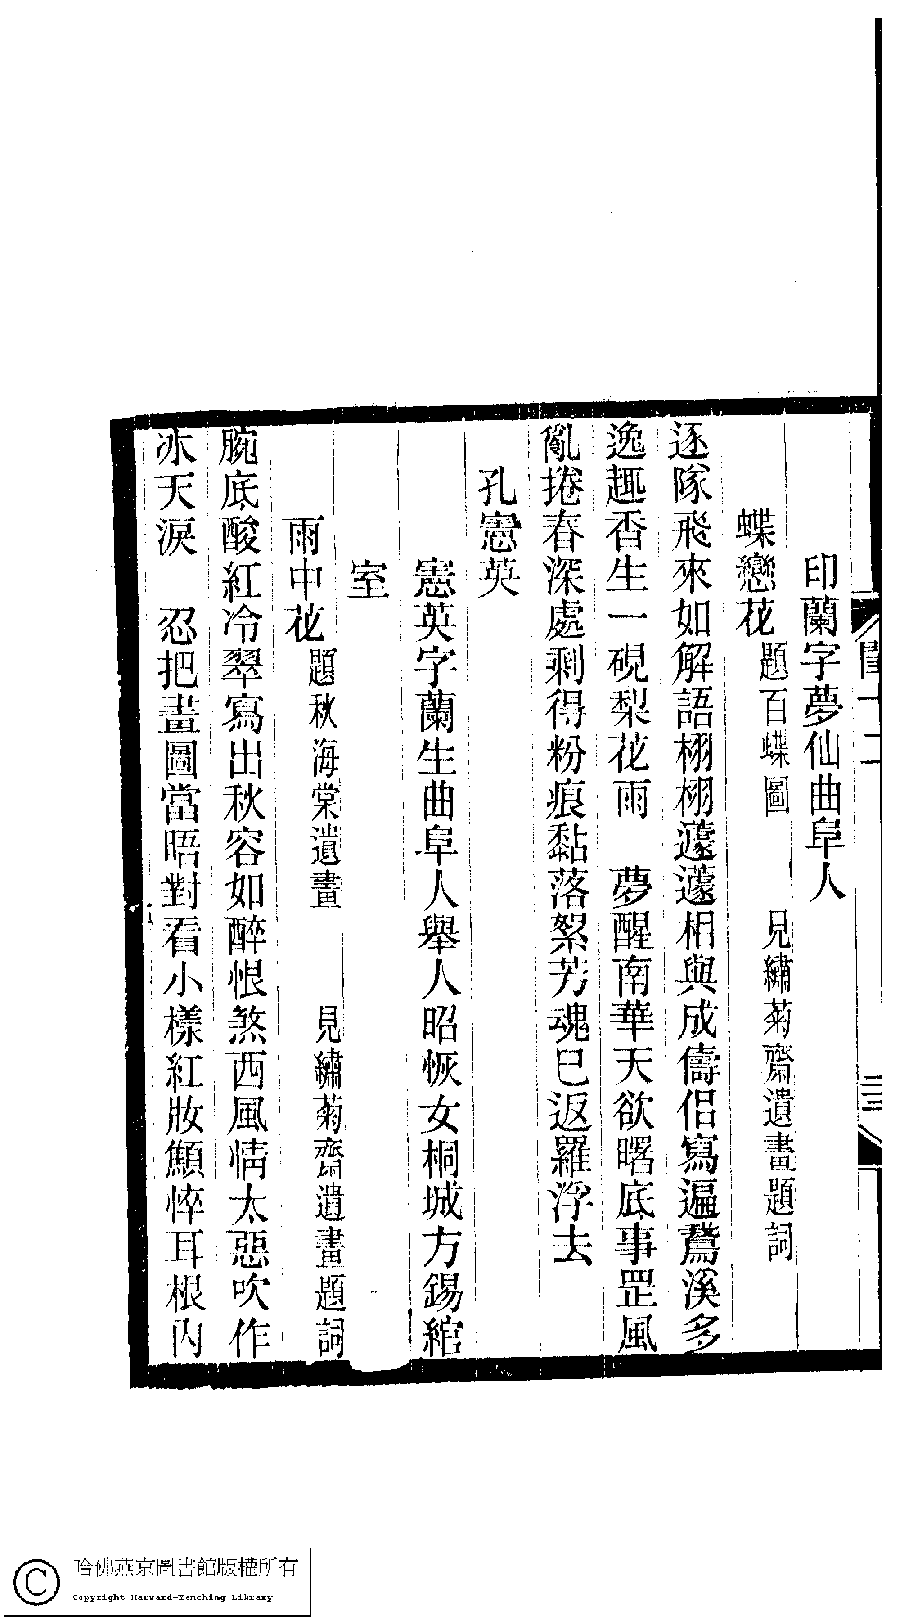 印蘭字夢仙曲阜人
蝶戀花題百蝶圖　見繡菊齋遺畫題詞
逐隊飛來如解語栩栩蘧蘧相與成儔侶寫遍鵞溪多
逸趣香生一硯梨花雨　夢醒南華天欲曙底事罡風
亂捲春深處剩得粉痕黏落絮芳魂已返羅浮去
孔憲英
憲英字蘭生曲阜人舉人昭恢女桐城方錫綰
室
雨中花題秋海棠遺畫　見繡菊齋遺畫題詞
腕底酸紅冷翠寫出秋容如醉恨煞西風情太惡吹作
冰天淚　忍把畫圖當晤對看小樣紅妝顦悴耳根內
哈佛燕京圖書館版權所有
Copyright Harvard-Yenching Library